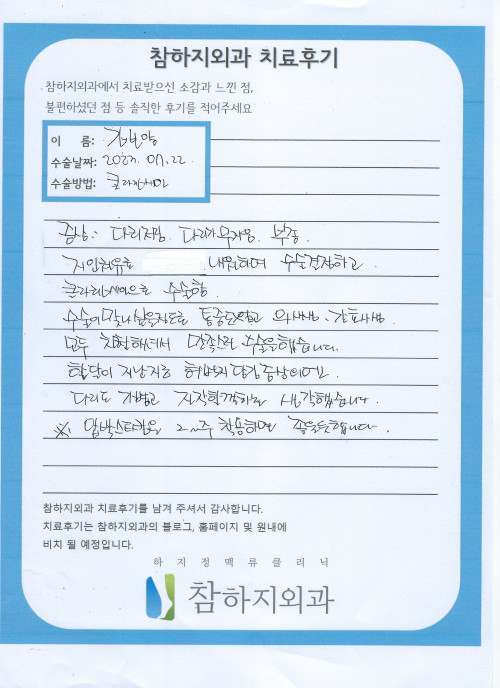 참하지외과 치료후기
참하지외과에서 치료받으신 소감과 느낀 점,
불편하셨던 점 등 솔직한 후기를 적어주세요
이 름:
수술날짜: 07. 22
수술방법:
증상: 다리저림. 다리가무거움. 부종.
지인권유로 내원하여 수술결정하고.
클라리베인으로 수술함
수술이 싶을정도로 통증도없고 의사쌤. 간호사쌤
모두 친절하셔서 만족스런 수술을했습니다.
한달이 지난지금 허벅지 당김증상이
다리도 가볍고 생각했습니다.
※ 압박스타킹을 2~3주 착용하면 좋을듯합니다.
참하지외과 치료후기를 남겨 주셔서 감사합니다.
치료후기는 참하지외과의 블로그, 홈페이지 및 원내에
비치 될 예정입니다.
하지정맥류클리닉
참하지외과